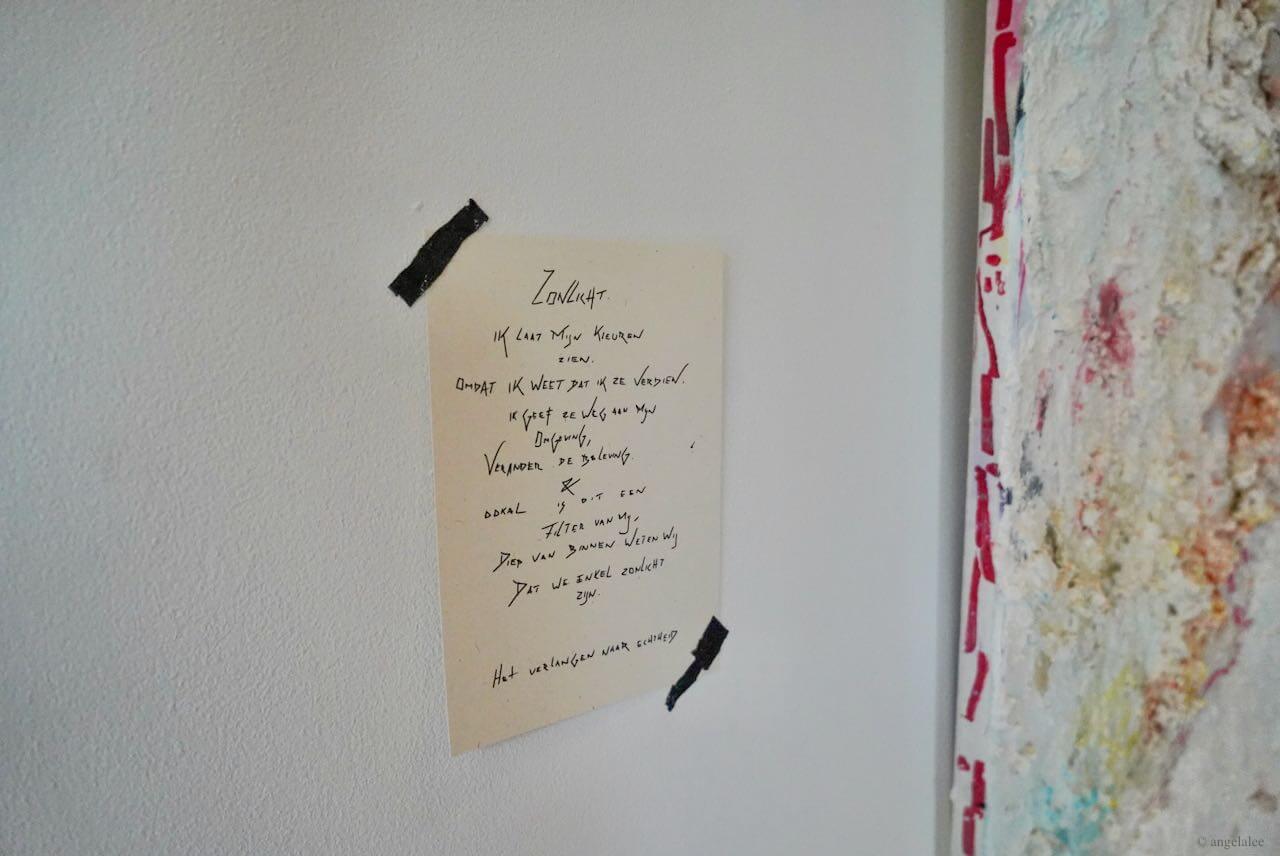 ZONLICHT.
IK LAAT MIJN KLEUREN
ZIEN.
OMDAT IK WEET DAT IK ZE VERDIEN.
IK GEEF ZE WEG AAN MIJN
OMGEVING,
VERANDER DE BELEVING.
&
OOKAL IS DIT EEN
FILTER VAN MIJ,
DIEP VAN BINNEN WETEN WIJ
DAT WE ENKEL ZONLICHT
ZIJN.
HET VERLANGEN NAAR ECHTHEID
© angelalee